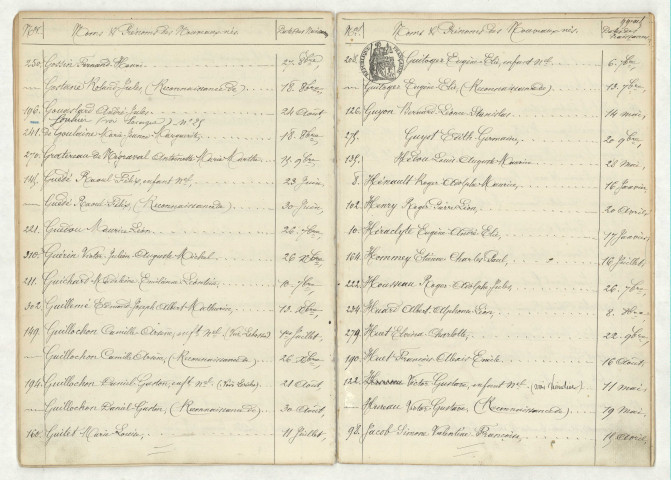 Nos Noms & Prénoms des Nouveaux-nés. Dates des Naissances
230. Gossin Fernand Henri 27 8bre
— Gostiaux Roland Jules (Reconnaissance de) 18 8bre
196. André Jules 24 Août
241. de Goulaine Marie Jeanne Marguerite 18 8bre
270. de Antoinette Marie Marthe 15 9bre
145. Guédé Raoul Félix, enfant nel 23 Juin
— Guédé Raoul Félix, (Reconnaissance de) 30 Juin,
221. Guédou Maurice Léon 26. 7bre
310. Guérin Victor Julien Auguste Michel 26 Xbre
211. Guichard Madeleine Emilienne Léontine 10. 7bre
302. Guillemé Edmond Joseph Albert Mathurin 13. Xbre
149. Guillochon Camille enft nel (Voir ) 1er Juillet,
— Guillochon Camille (Reconnaissance de) 26 Xbre,
194. Guillochon Daniel Gaston, enft nel (Voir ) 21 Août
— Guillochon Daniel Gaston, (Reconnaissance de) 30 Août,
160. Guilet Marie Louise, 11 Juillet,
Nos Noms & Prénoms des Nouveaux-nés. Dates des Naissances
208. Guitoger Eugène Elie, enfant nel 6. 7bre
— Guitoger Eugène Elie, (Reconnaissance de) 13. 7bre,
126. Guyon Bernard Léon Stanislas 14 mai,
275. Guyot Edith Germaine, 20 9bre,
135. Hélou Louis Auguste Maurice 28 Mai,
8. Hénault Roger Adolphe Maurice, 16 Janvier,
102. Henry Roger Pierre Léon, 20 Avril,
10. Héraclyte Eugène André Elie, 17 Janvier,
164. Hommey Etienne Charles Paul, 16 Juillet,
222. Housseau Roger Adolphe Jules, 26. 7bre,
234. Huard Albert Alphonse Léon, 8. 8bre,
279. Huet Edouard Charlotte, 22. 9bre,
190. Huet François Alexis Emile 16 Août,
122. Hureau Victor Gustave, enfant nel (voir ) 11 mai,
— Hureau Victor Gustave, (Reconnaissance de) 19 Mai,
98. Jacob Simone Valentine Françoise, 15 Avril,